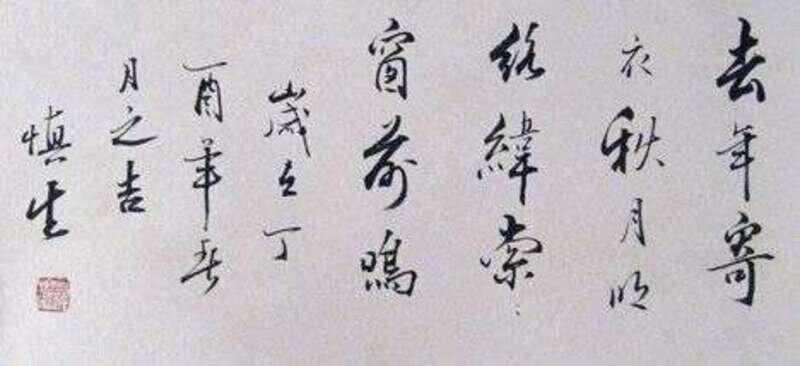 去年寄
衣秋月明
絡緯索々
窗前鳴
歲在丁
酉年春
月之吉
慎生